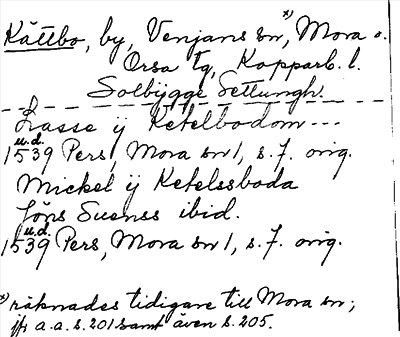 Kättbo, by, Venjans sn,*) Mora o.
Orsa tg, Kopparb. l.
Solbygge Settungh.
Lasse ij Ketelbodom ---
u.d.
1539 Pers, Mora sn 1, s. 7. orig.
Mickel ij Ketelssboda
Jöns Suenss ibid.
u.d.
1539 Pers, Mora sn 1, s. 7. orig.
*) räknades tidigare till Mora sn;
jfr a.a. s. 201 samt även s. 205.